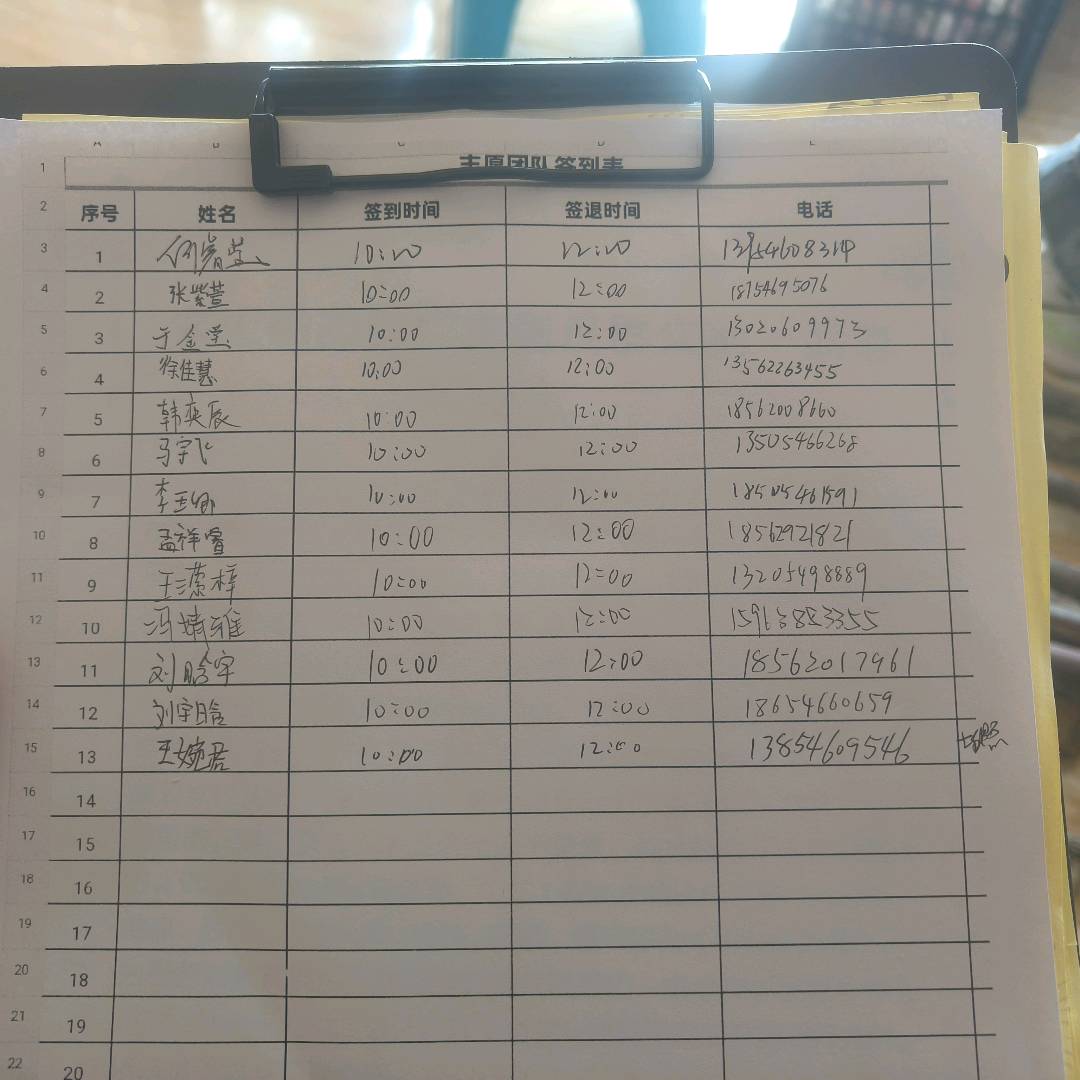 A B C D E
1 志愿团队签到表
2 序号 姓名 签到时间 签退时间 电话
3 1 10:00 12:00
4 2 张紫萱 10:00 12:00 18754695076
5 3 于金堂 10:00 12:00 13020609973
6 4 徐佳慧 10:00 12:00 13562263455
7 5 韩奕辰 10:00 12:00 18562008660
8 6 马宇飞 10:00 12:00 13505466268
9 7 李亚娜 10:00 12:00 18505461591
10 8 孟祥睿 10:00 12:00 18562921821
11 9 王潆梓 10:00 12:00 13205498889
12 10 冯婧雅 10:00 12:00 15963883355
13 11 刘晗宇 10:00 12:00 18562017961
14 12 刘宇晗 10:00 12:00 18654660659
15 13 王婉君 10:00 12:00 13854609546
16 14
17 15
18 16
19 17
20 18
21 19
22 20